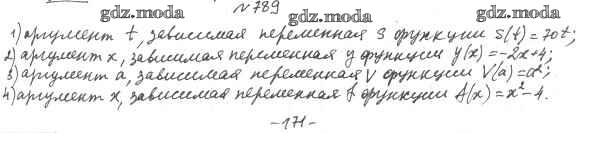 №789
gdz.moda gdz.moda gdz.moda
1) аргумент t, зависимая переменная s функции s(t)=70t;
2) аргумент x, зависимая переменная y функции y(x)=-2x+4;
3) аргумент a, зависимая переменная V функции V(a)=a³;
4) аргумент x, зависимая переменная f функции f(x)=x²-4.
-171-